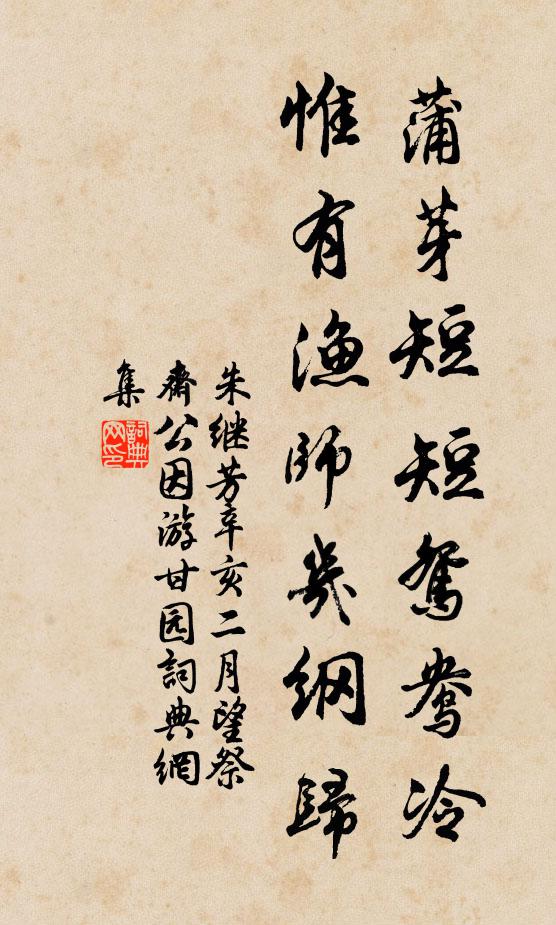 蒲芽短短鸳鸯冷
惟有漁師幾綱歸
朱继芳辛亥二月望祭
齋公因游甘园詞典網
集
詞典
网印